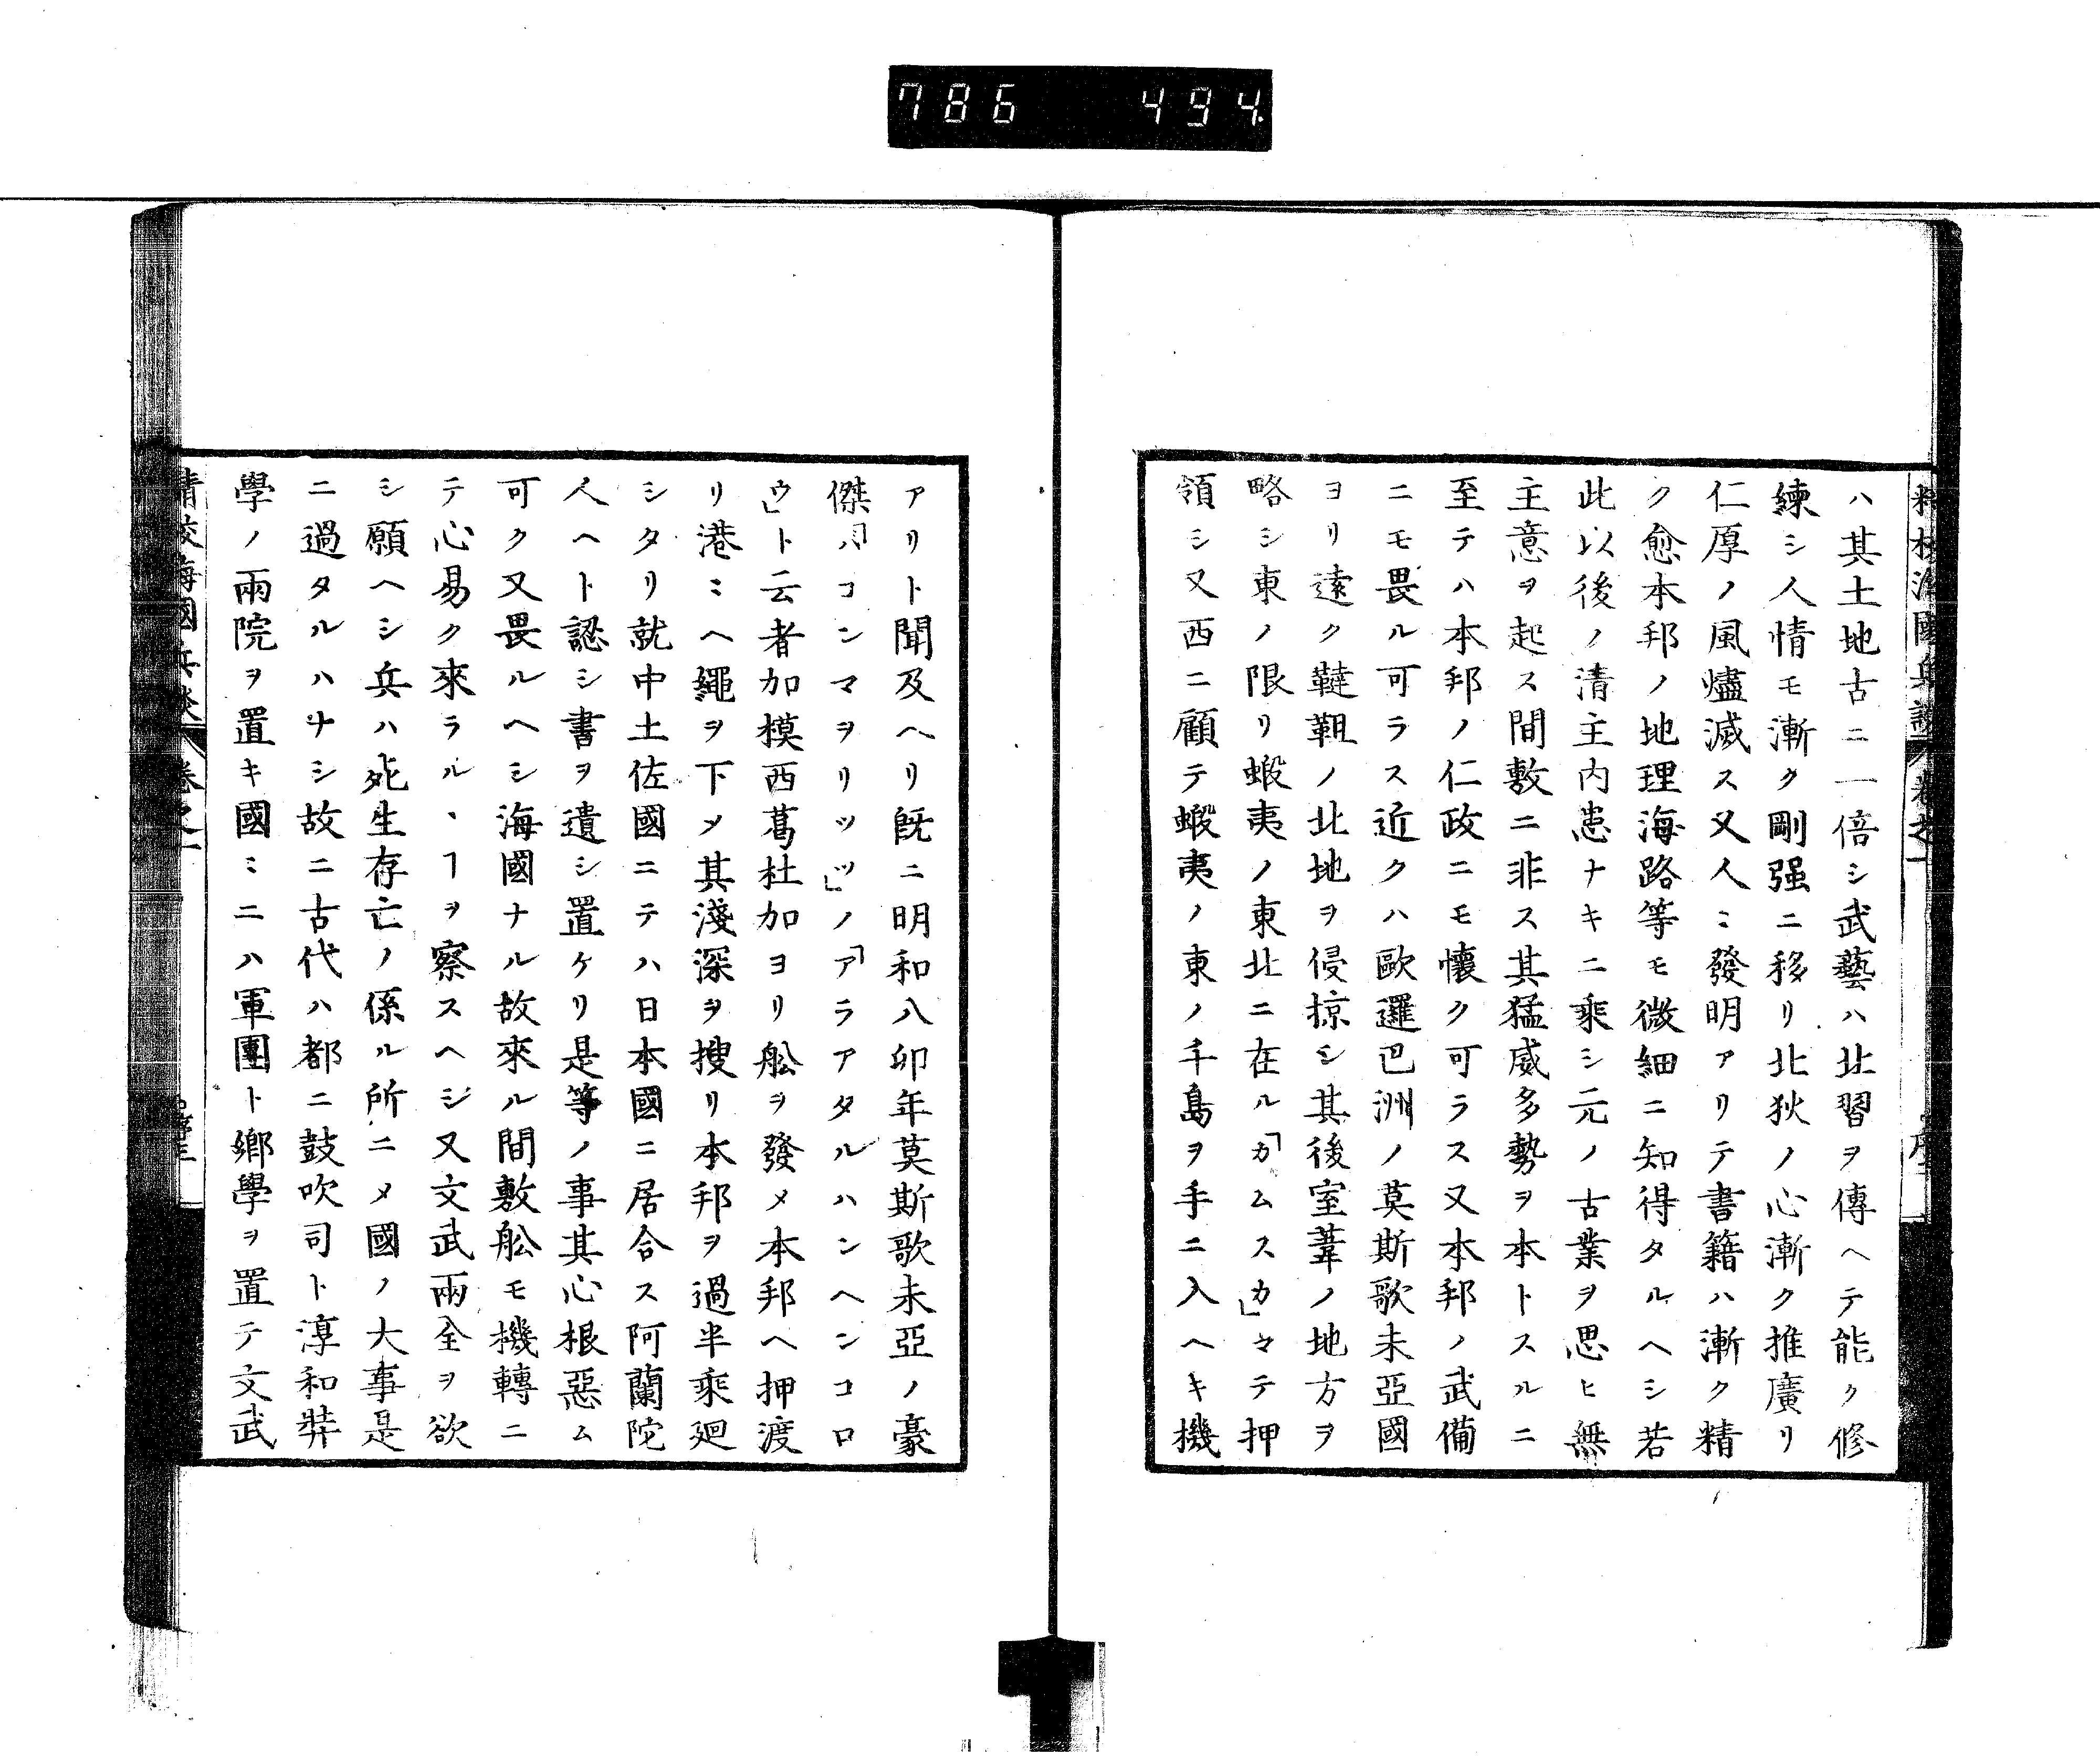 786 494
ハ其土地古ニ一倍シ武藝ハ北習ヲ傳ヘテ能ク修
練シ人情モ漸ク剛强ニ移リ北狄ノ心漸ク推廣リ
仁厚ノ風燼滅ス又人〻發明アリテ書籍ハ漸ク精
ク愈本邦ノ地理海路等モ微細ニ知得タルヘシ若
此以後ノ清主内患ナキニ乘シ元ノ古業ヲ思ヒ無
主意ヲ起ス間敷ニ非ス其猛威多勢ヲ本トスルニ
至テハ本邦ノ仁政ニモ懷ク可ラス又本邦ノ武備
ニモ畏ル可ラス近クハ歐邏巴洲ノ莫斯歌未亞國
ヨリ遠ク韃靼ノ北地ヲ侵掠シ其後室葦ノ地方ヲ
略シ東ノ限リ蝦夷ノ東北ニ在ル「カムスカ」マテ押
領シ又西ニ顧テ蝦夷ノ東ノ千島ヲ手ニ入ヘキ機
アリト聞及ヘリ既ニ明和八卯年莫斯歌未亞ノ豪
傑「バコンマヲリツツ」ノ「アラアタルハンヘンコロ
ウ」ト云者加模西葛杜加ヨリ舩ヲ發メ本邦ヘ押渡
リ港〻ヘ繩ヲ下メ其淺深ヲ搜リ本邦ヲ過半乘廻
シタリ就中土佐國ニテハ日本國ニ居合ス阿蘭陀
人ヘト認シ書ヲ遺シ置ケリ是等ノ事其心根惡ム
可ク又畏ルヘシ海國ナル故來ル間敷舩モ機轉ニ
テ心易ク來ラルヽヿヲ察スヘシ又文武兩全ヲ欲
シ願ヘシ兵ハ死生存亡ノ係ル所ニメ國ノ大事是
ニ過タルハナシ故ニ古代ハ都ニ鼓吹司ト淳和弉
學ノ兩院ヲ置キ國〻ニハ軍團ト鄉學ヲ置テ文武
精校海國兵談 卷之一